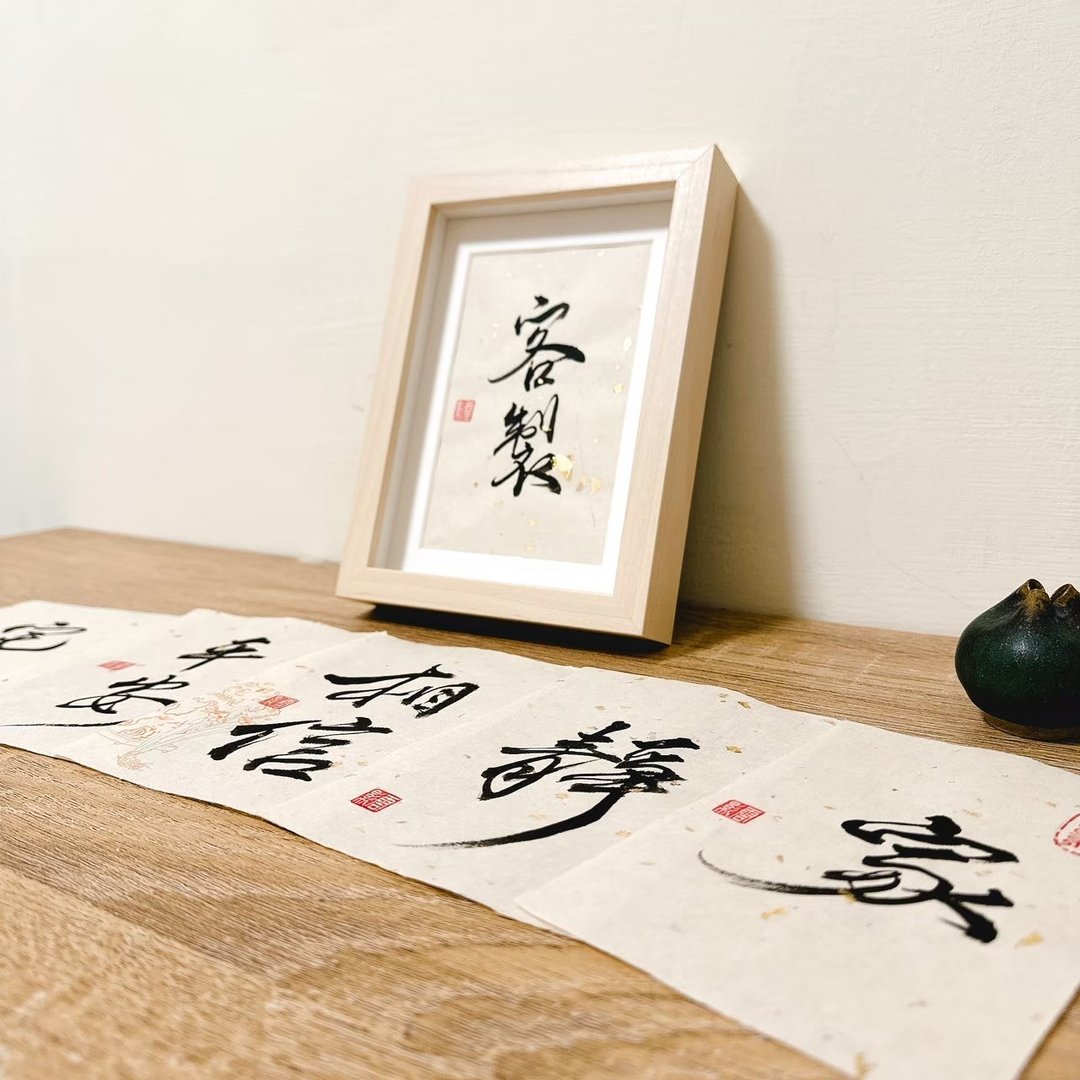 客製
平安
相信
靜
家